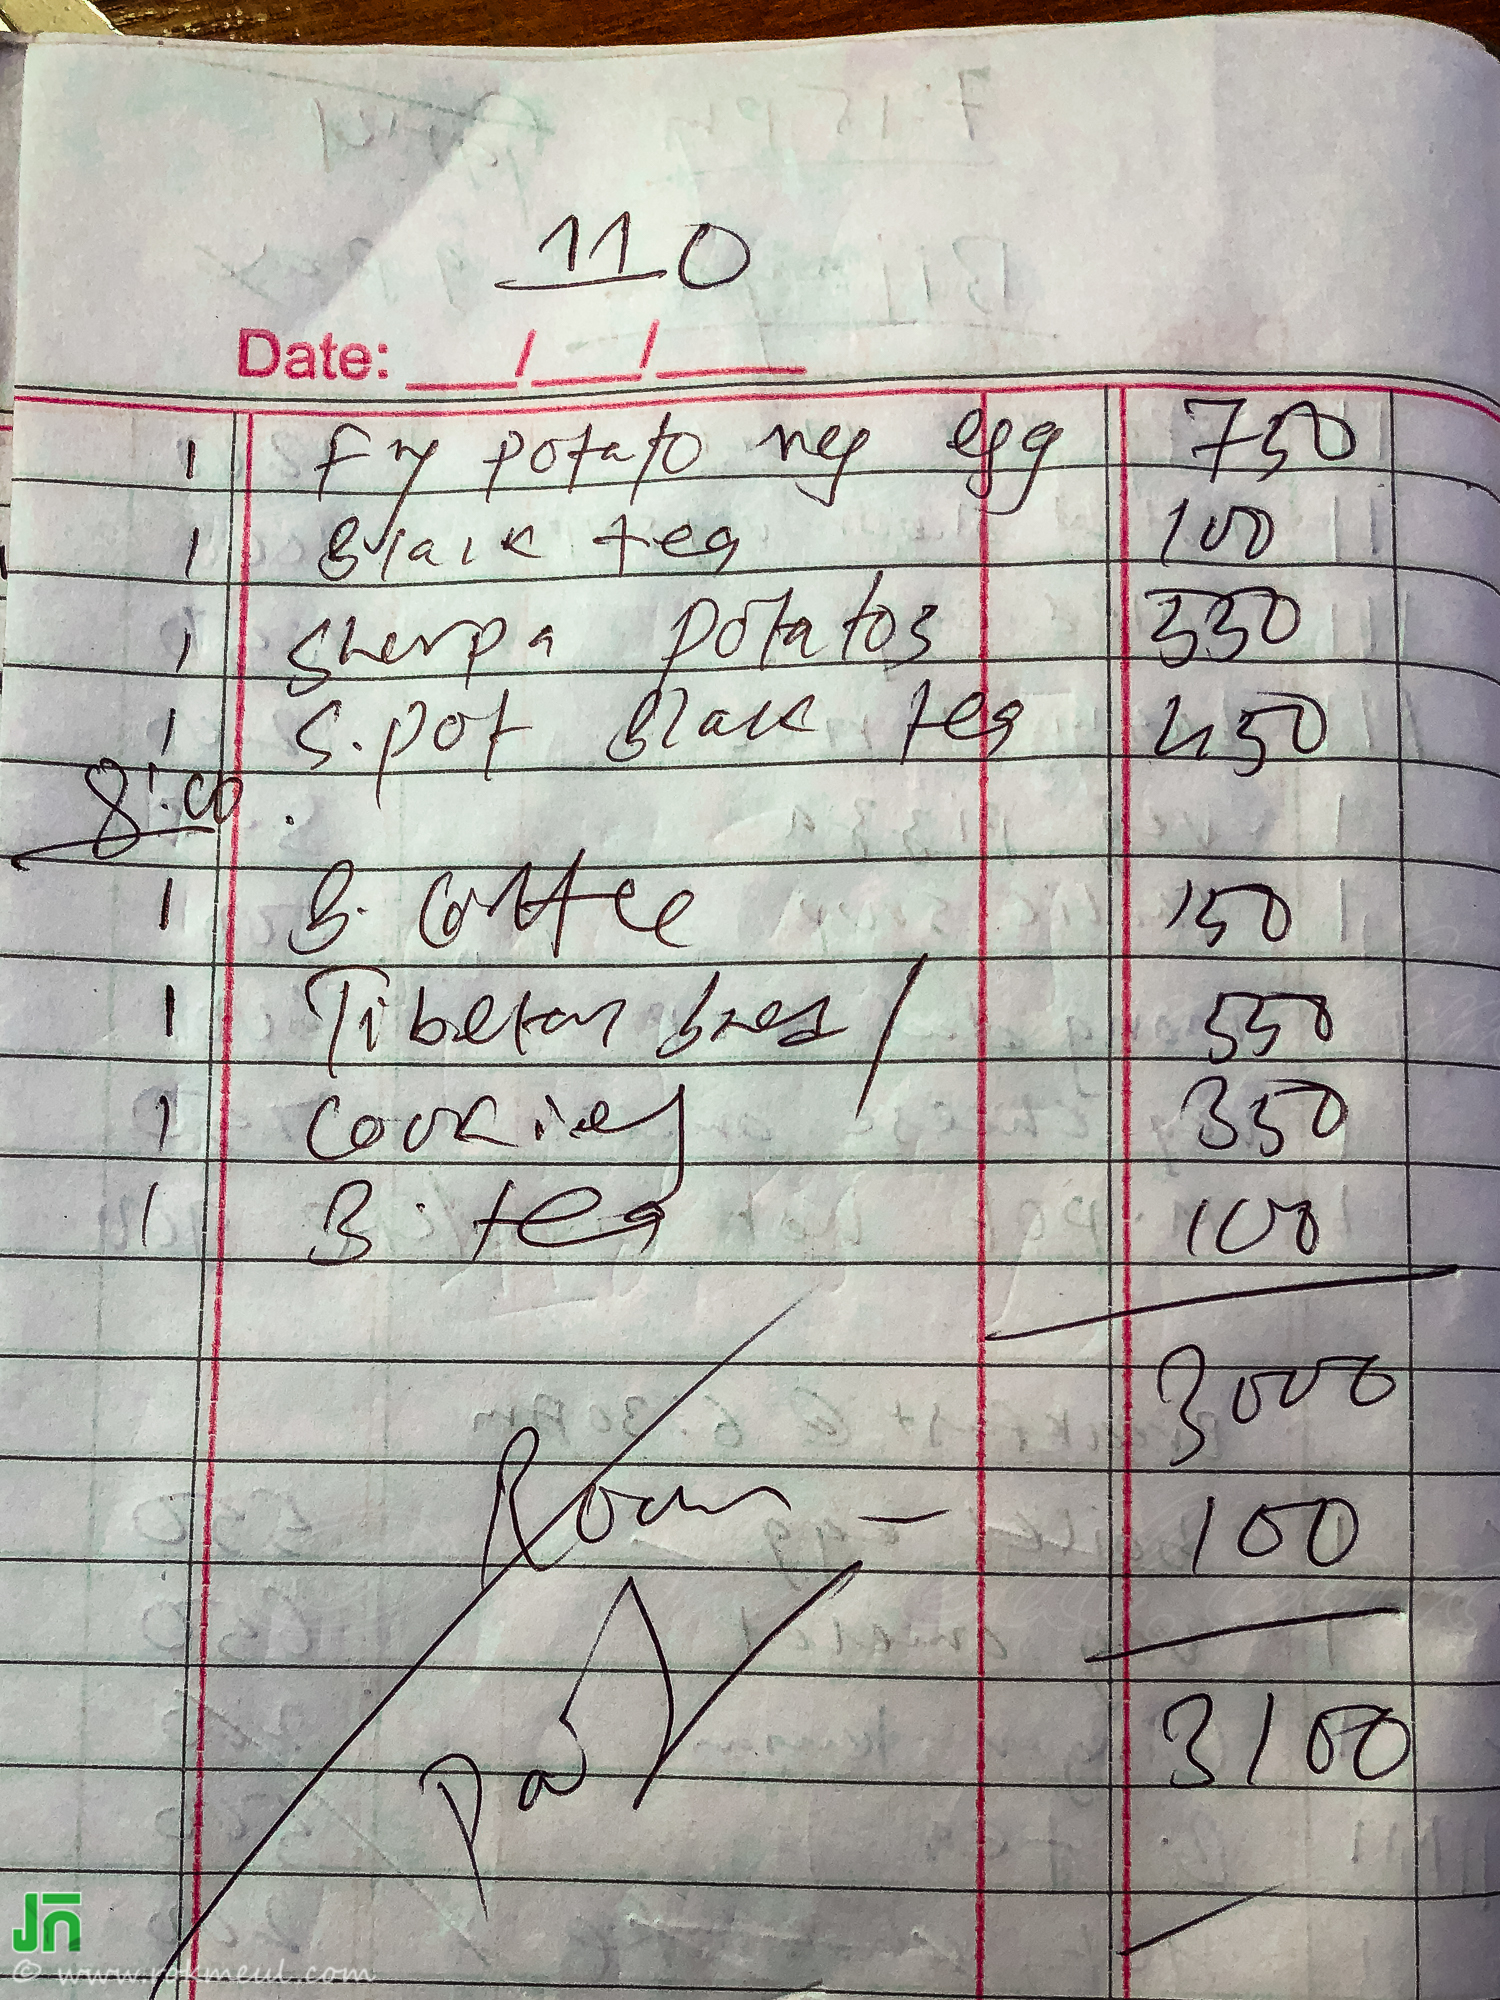 110
Date: __/__/____
1 Fry potato veg egg 750
1 Black tea 100
1 Sherpa potatos 550
1 S.pot Black tea 450
8:00
1 B. Coffee 150
1 Tibetan bread 550
1 Cookies 350
1 B. tea 100
3000
Room - 100
3100
Jn
© www.rokmeul.com